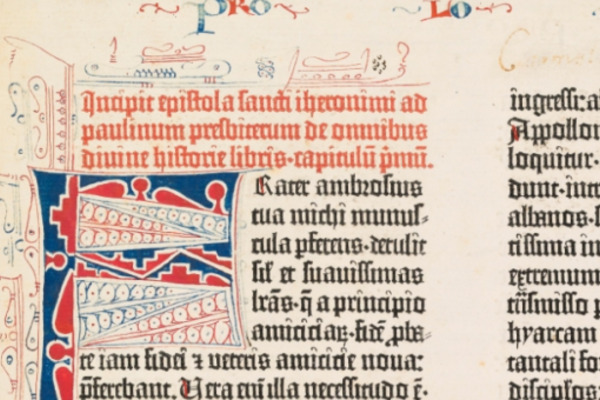 pRo Lo
Incipit epistola sancti iheronimi ad
paulinum presbiterum de omnibus
diuine historie libris·capitulū p̄mū.
FRater ambrosius
tua michi munus-
cula p̄ferens·detulit
sił et suauissimas
lr̄as·q̄ a principio
amiciciaꝝ·fidē ꝓba-
te iam fidei ⁊ veteris amicicie noua:
p̄ferebant. Vera enī illa necessitudo ē·
ingressi:
Appollon
loquitur·
dunt·
albanos·
tissima in
extremum
hyarcam
tantali